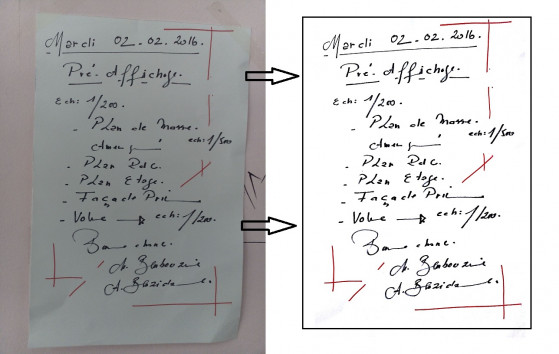 Mardi 02.02.2016.
Pré-Affichage.
Ech: 1/200.
- Plan de Masse.
ech: 1/500
- Plan RdC.
- Plan Etage.
- Façade Pri
- Volume → ech: 1/200.
Bon
A.
A.
Mardi 02.02.2016.
Pré-Affichage.
Ech: 1/200.
- Plan de Masse.
ech: 1/500
- Plan RdC.
- Plan Etage.
- Façade Pri
- Volume → ech: 1/200.
Bon
A.
A.